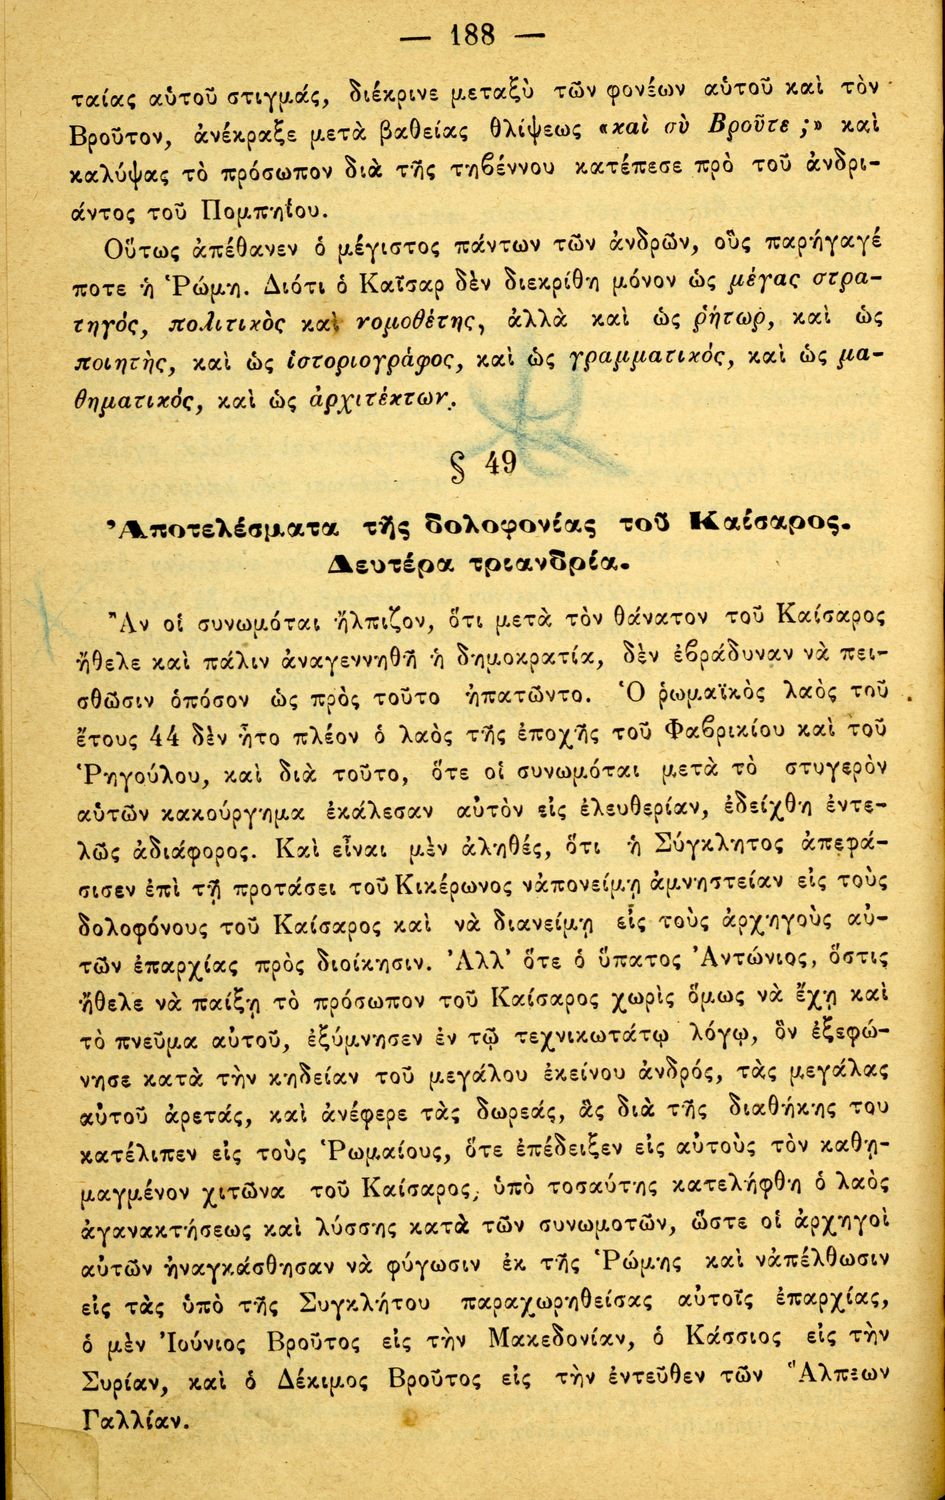 — 188 —
ταίας αὑτοῦ στιγμάς, διέκρινε μεταξὺ τῶν φονέων αὑτοῦ καὶ τὸν
Βροῦτον, ἀνέκραξε μετὰ βαθείας θλίψεως «καὶ σὺ Βροῦτε ;» καὶ
καλύψας τὸ πρόσωπον διὰ τῆς τηβέννου κατέπεσε πρὸ τοῦ ἀνδρι-
άντος τοῦ Πομπηΐου.
Οὕτως ἀπέθανεν ὁ μέγιστος πάντων τῶν ἀνδρῶν, οὓς παρήγαγέ
ποτε ἡ Ῥώμη. Διότι ὁ Καῖσαρ δὲν διεκρίθη μόνον ὡς μέγας στρα-
τηγός, πολιτικὸς καὶ νομοθέτης, ἀλλὰ καὶ ὡς ῥήτωρ, καὶ ὡς
ποιητὴς, καὶ ὡς ἱστοριογράφος, καὶ ὡς γραμματικός, καὶ ὡς μα-
θηματικός, καὶ ὡς ἀρχιτέκτων.
§ 49
Ἀποτελέσματα τῆς δολοφονίας τοῦ Καίσαρος.
Δευτέρα τριανδρία.
Ἂν οἱ συνωμόται ἤλπιζον, ὅτι μετὰ τὸν θάνατον τοῦ Καίσαρος
ἤθελε καὶ πάλιν ἀναγεννηθῆ ἡ δημοκρατία, δὲν ἐβράδυναν νὰ πει-
σθῶσιν ὁπόσον ὡς πρὸς τοῦτο ἠπατῶντο. Ὁ ῥωμαϊκὸς λαὸς τοῦ
ἔτους 44 δὲν ἦτο πλέον ὁ λαὸς τῆς ἐποχῆς τοῦ Φαβρικίου καὶ τοῦ
Ῥηγούλου, καὶ διὰ τοῦτο, ὅτε οἱ συνωμόται μετὰ τὸ στυγερὸν
αὑτῶν κακούργημα ἐκάλεσαν αὐτὸν εἰς ἐλευθερίαν, ἐδείχθη ἐντε-
λῶς ἀδιάφορος. Καὶ εἶναι μὲν ἀληθές, ὅτι ἡ Σύγκλητος ἀπεφά-
σισεν ἐπὶ τῇ προτάσει τοῦ Κικέρωνος νἀπονείμῃ ἀμνηστείαν εἰς τοὺς
δολοφόνους τοῦ Καίσαρος καὶ νὰ διανείμῃ εἰς τοὺς ἀρχηγοὺς αὐ-
τῶν ἐπαρχίας πρὸς διοίκησιν. Ἀλλ' ὅτε ὁ ὕπατος Ἀντώνιος, ὅστις
ἤθελε νὰ παίξῃ τὸ πρόσωπον τοῦ Καίσαρος χωρὶς ὅμως νὰ ἔχῃ καὶ
τὸ πνεῦμα αὐτοῦ, ἐξύμνησεν ἐν τῷ τεχνικωτάτῳ λόγῳ, ὃν ἐξεφώ-
νησε κατὰ τὴν κηδείαν τοῦ μεγάλου ἐκείνου ἀνδρός, τὰς μεγάλας
αὐτοῦ ἀρετάς, καὶ ἀνέφερε τὰς δωρεάς, ἃς διὰ τῆς διαθήκης του
κατέλιπεν εἰς τοὺς Ῥωμαίους, ὅτε ἐπέδειξεν εἰς αὐτοὺς τὸν καθῃ-
μαγμένον χιτῶνα τοῦ Καίσαρος, ὑπὸ τοσαύτης κατελήφθη ὁ λαὸς
ἀγανακτήσεως καὶ λύσσης κατὰ τῶν συνωμοτῶν, ὥστε οἱ ἀρχηγοὶ
αὐτῶν ἠναγκάσθησαν νὰ φύγωσιν ἐκ τῆς Ῥώμης καὶ νἀπέλθωσιν
εἰς τὰς ὑπὸ τῆς Συγκλήτου παραχωρηθείσας αὐτοῖς ἐπαρχίας,
ὁ μὲν Ἰούνιος Βροῦτος εἰς τὴν Μακεδονίαν, ὁ Κάσσιος εἰς τὴν
Συρίαν, καὶ ὁ Δέκιμος Βροῦτος εἰς τὴν ἐντεῦθεν τῶν Ἄλπεων
Γαλλίαν.